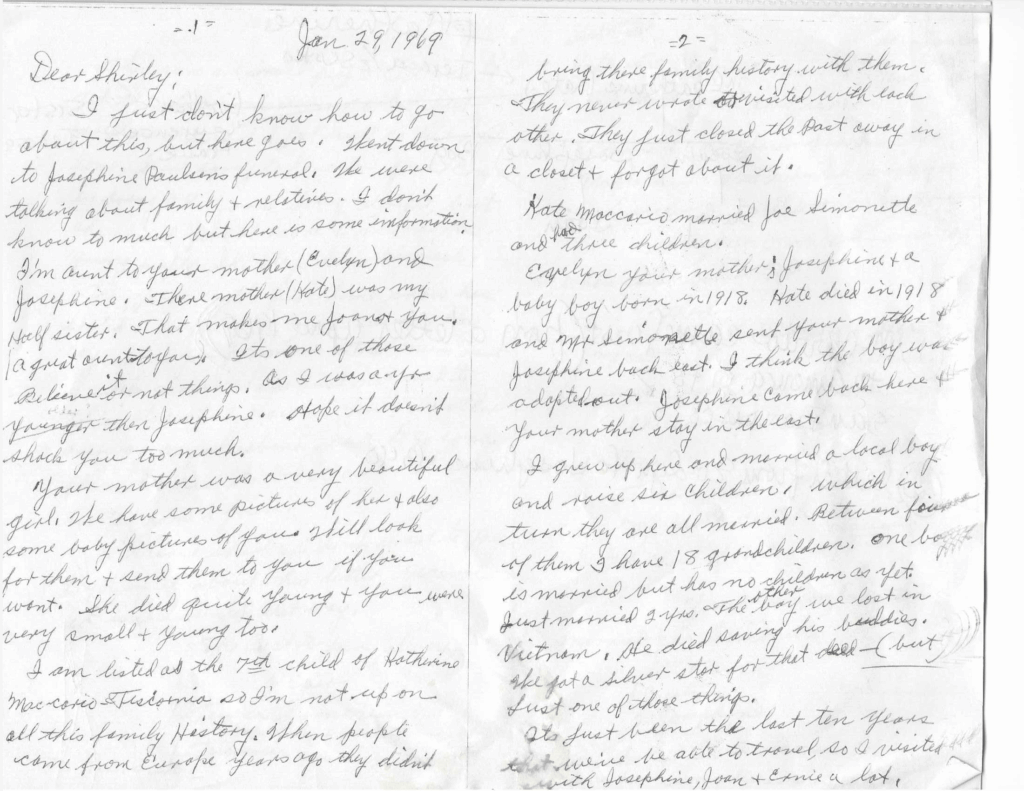 =.1=
Jan 29, 1969
Dear Shirley;
I just don't know how to go
about this, but here goes. Went down
to Josephine Paulsen's funeral. We were
talking about family + relatives. I don't
know to much but here is some information.
I'm aunt to your mother (Evelyn) and
Josephine. There mother (Kate) was my
Half sister. That makes me Joans + you.
(a great aunt to you. Its one of those
Believe it or not things. As I was a yr
younger then Josephine. Hope it doesn't
shock you too much.
Your mother was a very beautiful
girl. We have some pictures of her + also
some baby pictures of you. Will look
for them + send them to you if you
want. She died quite young + you were
very small + young too.
I am listed as the 7th child of Katherine
Maccario-Tiscornia so I'm not up on
all this family History. When people
came from Europe years ago they didn't
=2=
bring there family history with them.
They never wrote or visited with each
other. They just closed the Past away in
a closet + forgot about it.
Kate Maccario married Joe Simonette
and had three children.
Evelyn your mother; Josephine + a
baby boy born in 1918. Kate died in 1918
and Mr Simonette sent your mother +
Josephine back east. I think the boy was
adopted out. Josephine came back here +
your mother stay in the east.
I grew up here and married a local boy
and raise six children. which in
turn they are all married. Between four
of them I have 18 grandchildren. one boy
is married but has no children as yet.
Just married 2 yrs. The other boy we lost in
Vietnam. He died saving his buddies.
He got a silver star for that deed (but)
Just one of those things.
Its just been the last ten years
that we've be able to travel, so I visited
with Josephine, Joan + Ernie a lot.